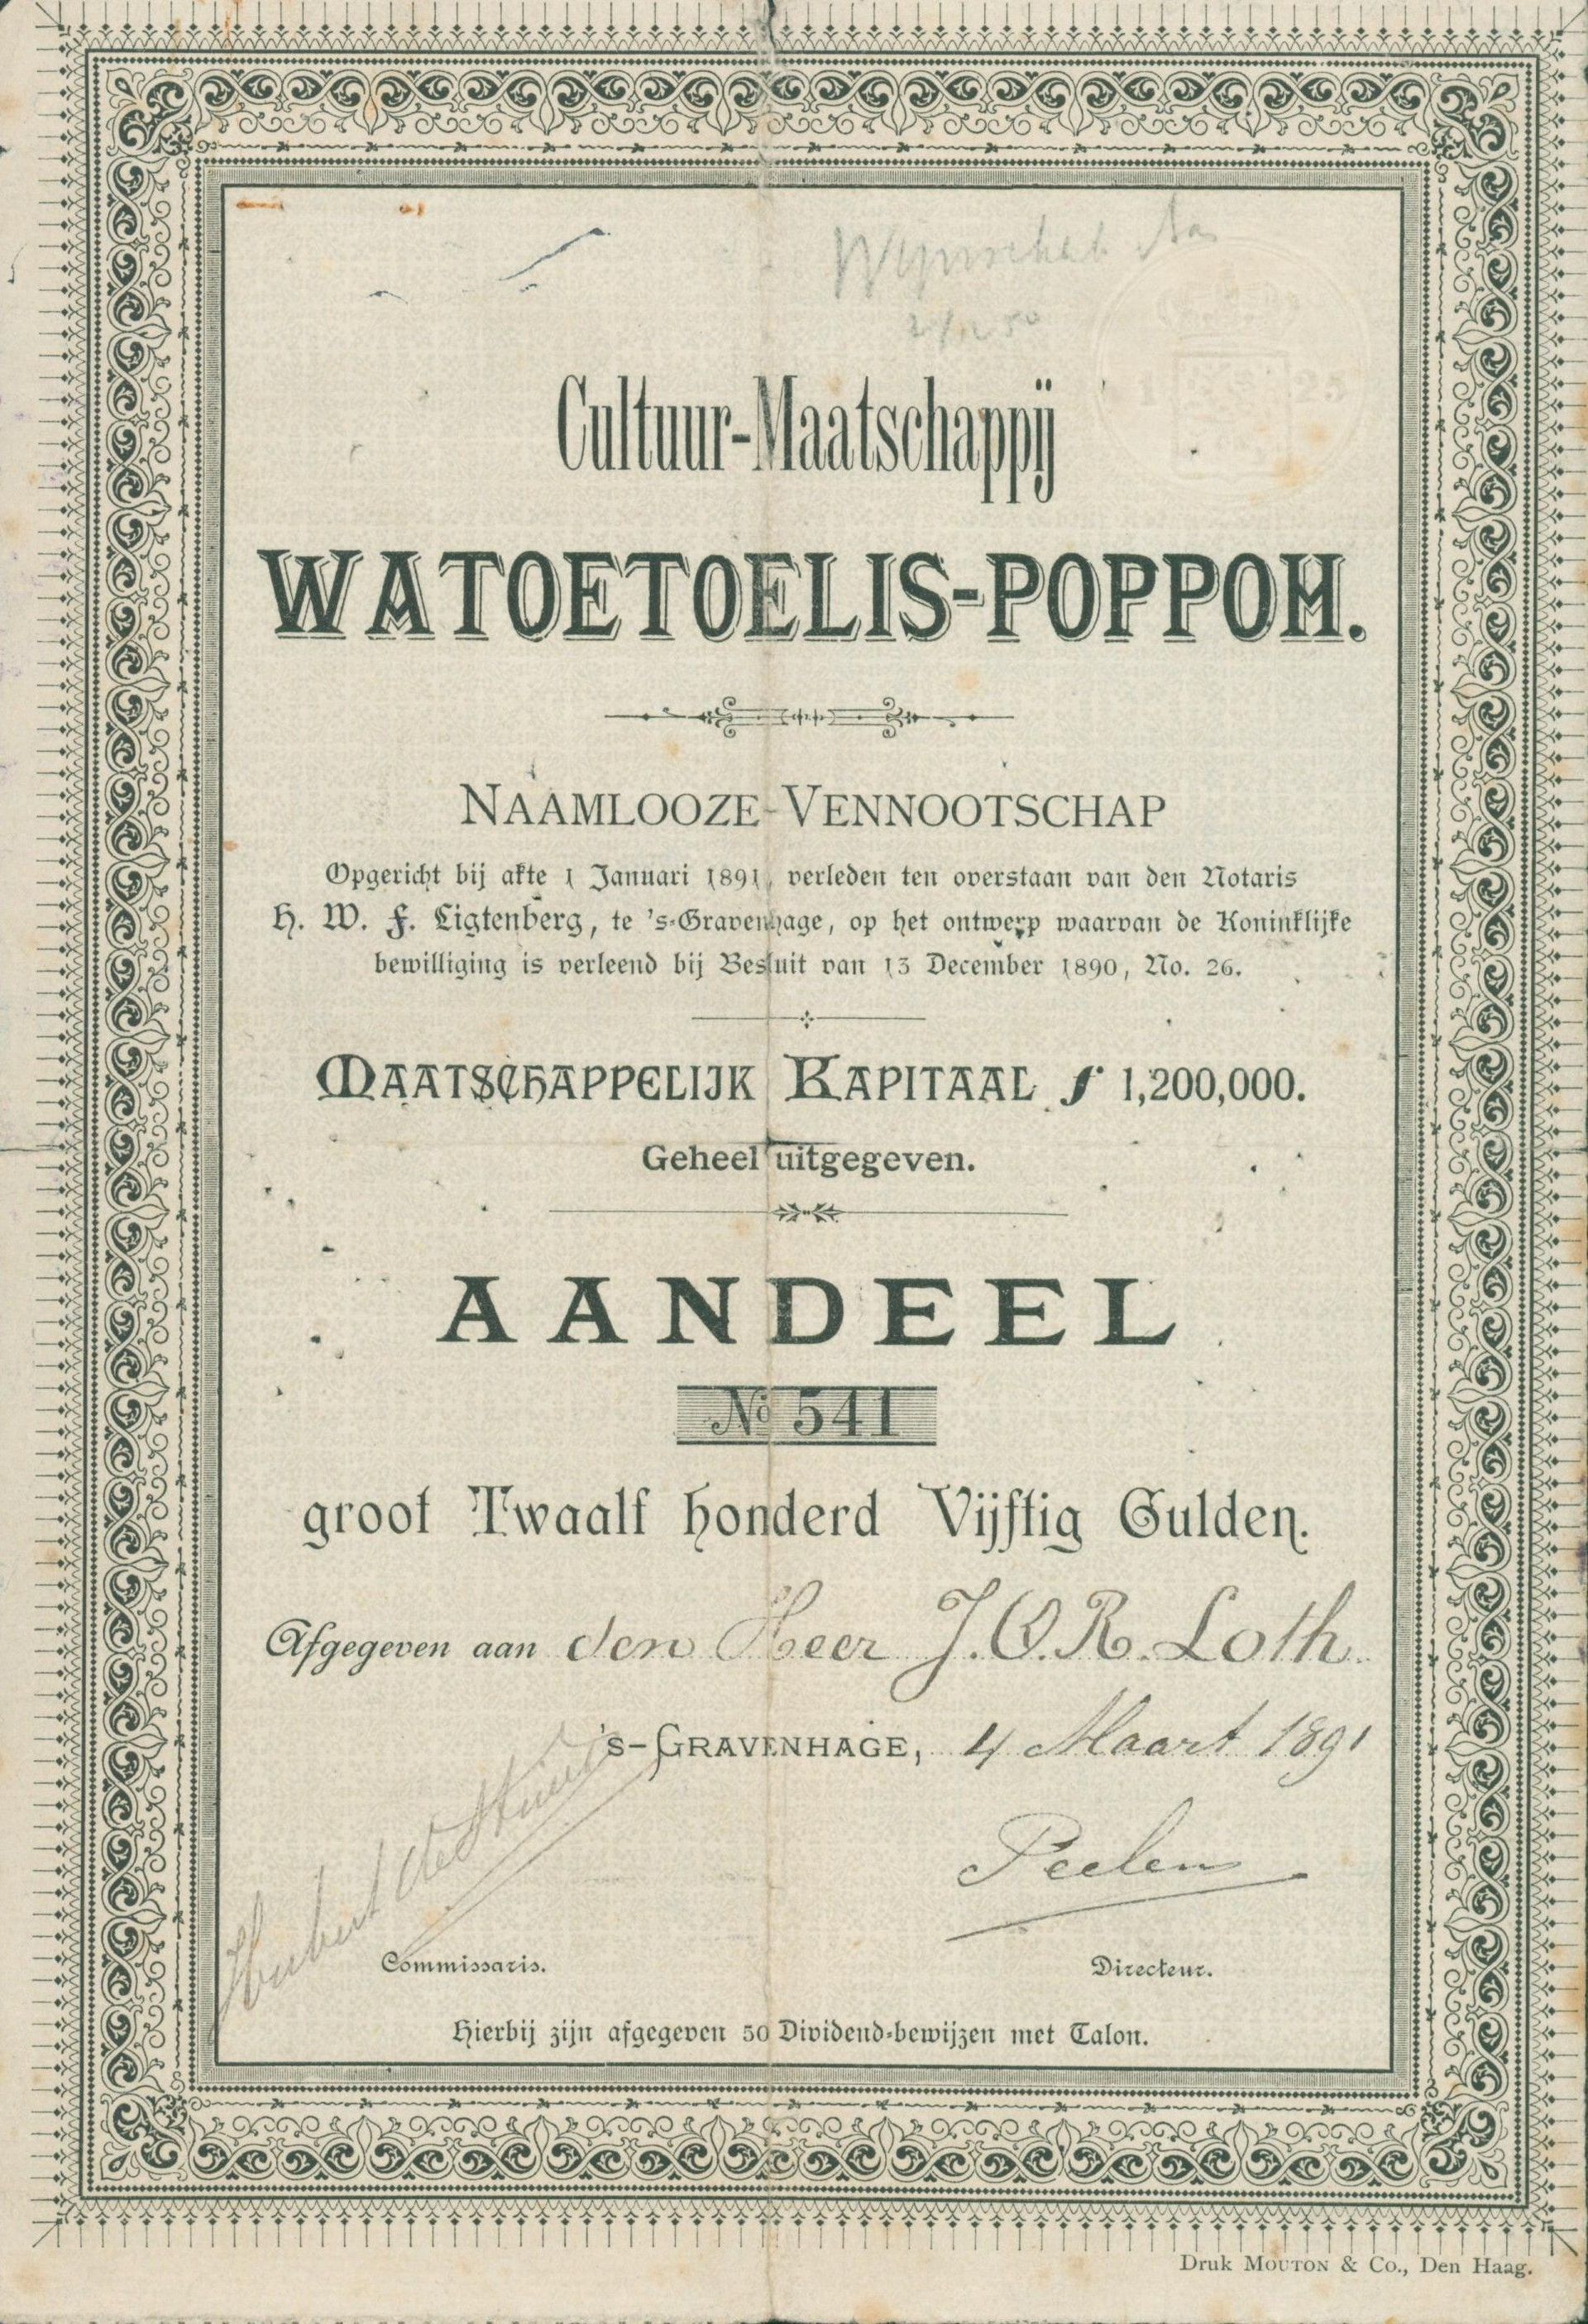 Cultuur-Maatschappij
WATOETOELIS-POPPOH.
NAAMLOOZE-VENNOOTSCHAP
Opgericht bij akte 1 Januari 1891, verleden ten overstaan van den Notaris
H. W. F. Ligtenberg, te 's-Gravenhage, op het ontwerp waarvan de Koninklijke
bewilliging is verleend bij Besluit van 13 December 1890, No. 26.
MAATSCHAPPELIJK KAPITAAL ƒ 1,200,000.
Geheel uitgegeven.
AANDEEL
No 541
groot Twaalf honderd Vijftig Gulden.
Afgegeven aan den Heer J.O.R. Loth
's-GRAVENHAGE, 4 Maart 1891
Peelen
Commissaris.
Directeur.
Hierbij zijn afgegeven 50 Dividend-bewijzen met Talon.
Druk MOUTON & Co., Den Haag.